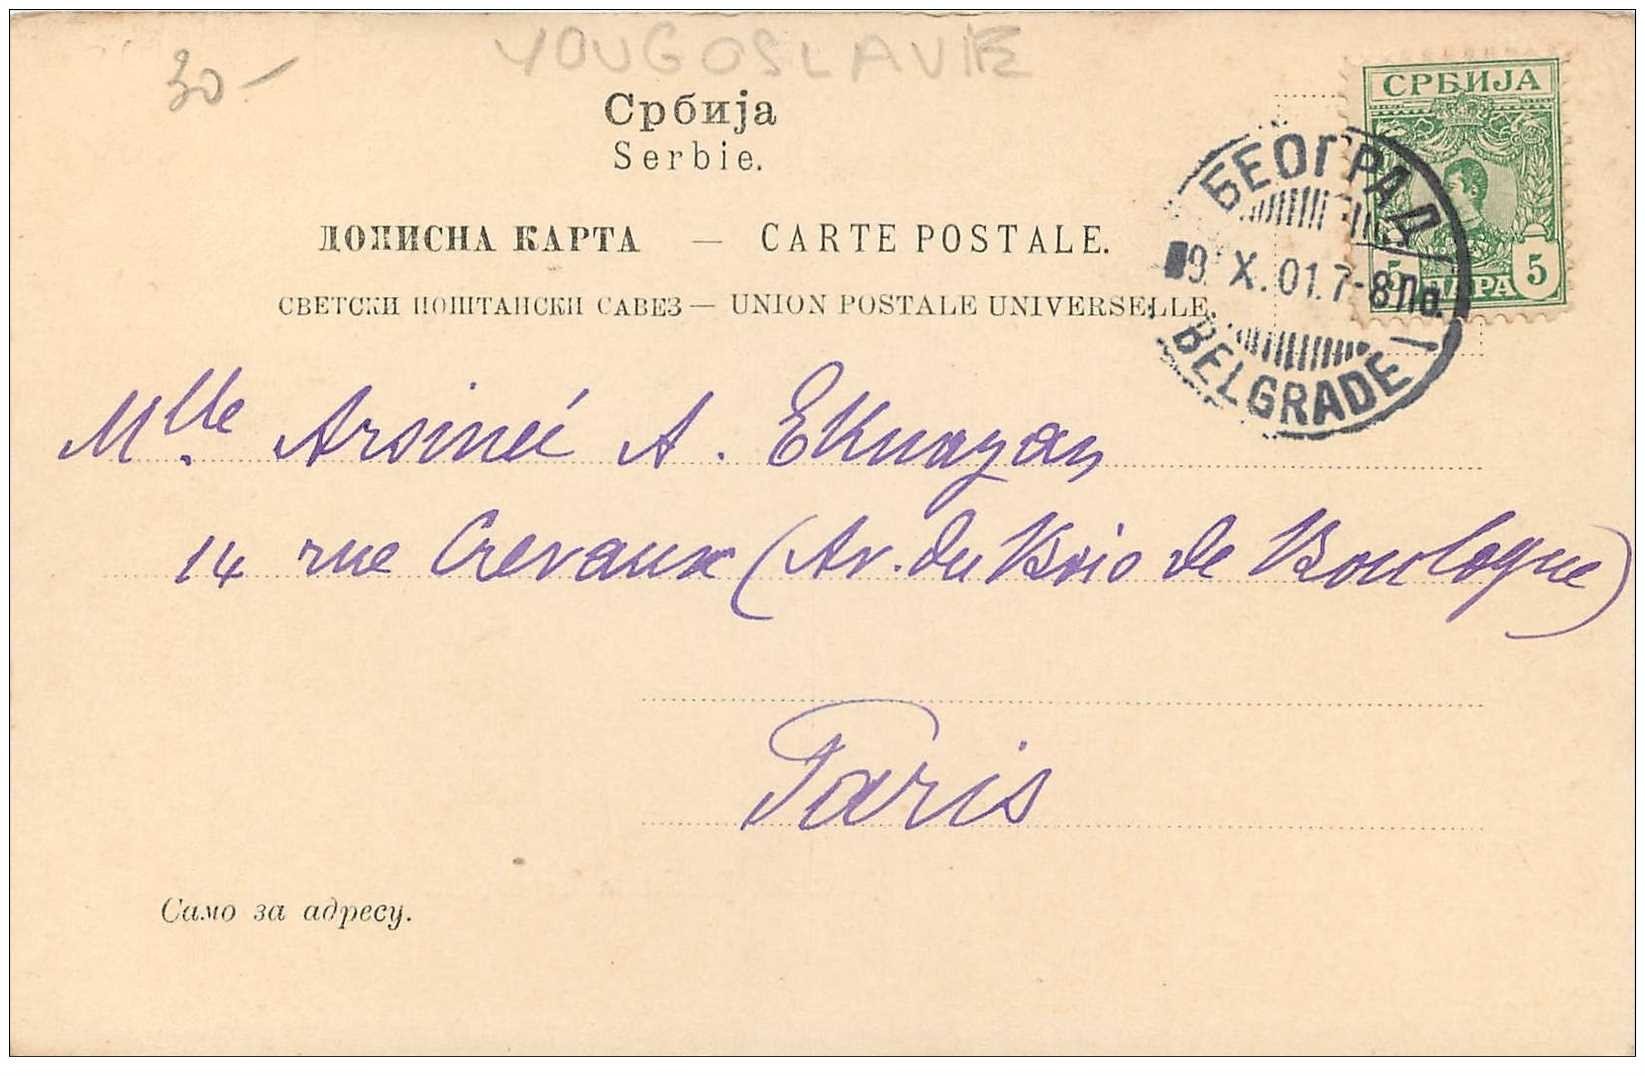 YOUGOSLAVIE
30-
Србија
Serbie.
ДОПИСНА КАРТА — CARTE POSTALE.
СВЕТСКИ ПОШТАНСКИ САВЕЗ — UNION POSTALE UNIVERSELLE
СРБИЈА
5 ПАРА 5
БЕОГРАД
9. X. 01. 7-8 По.
BELGRADE
Mlle. Arsineé A. Eknayan
14 rue Crevaux (Av. du Bois de Boulogne)
Paris
Само за адресу.